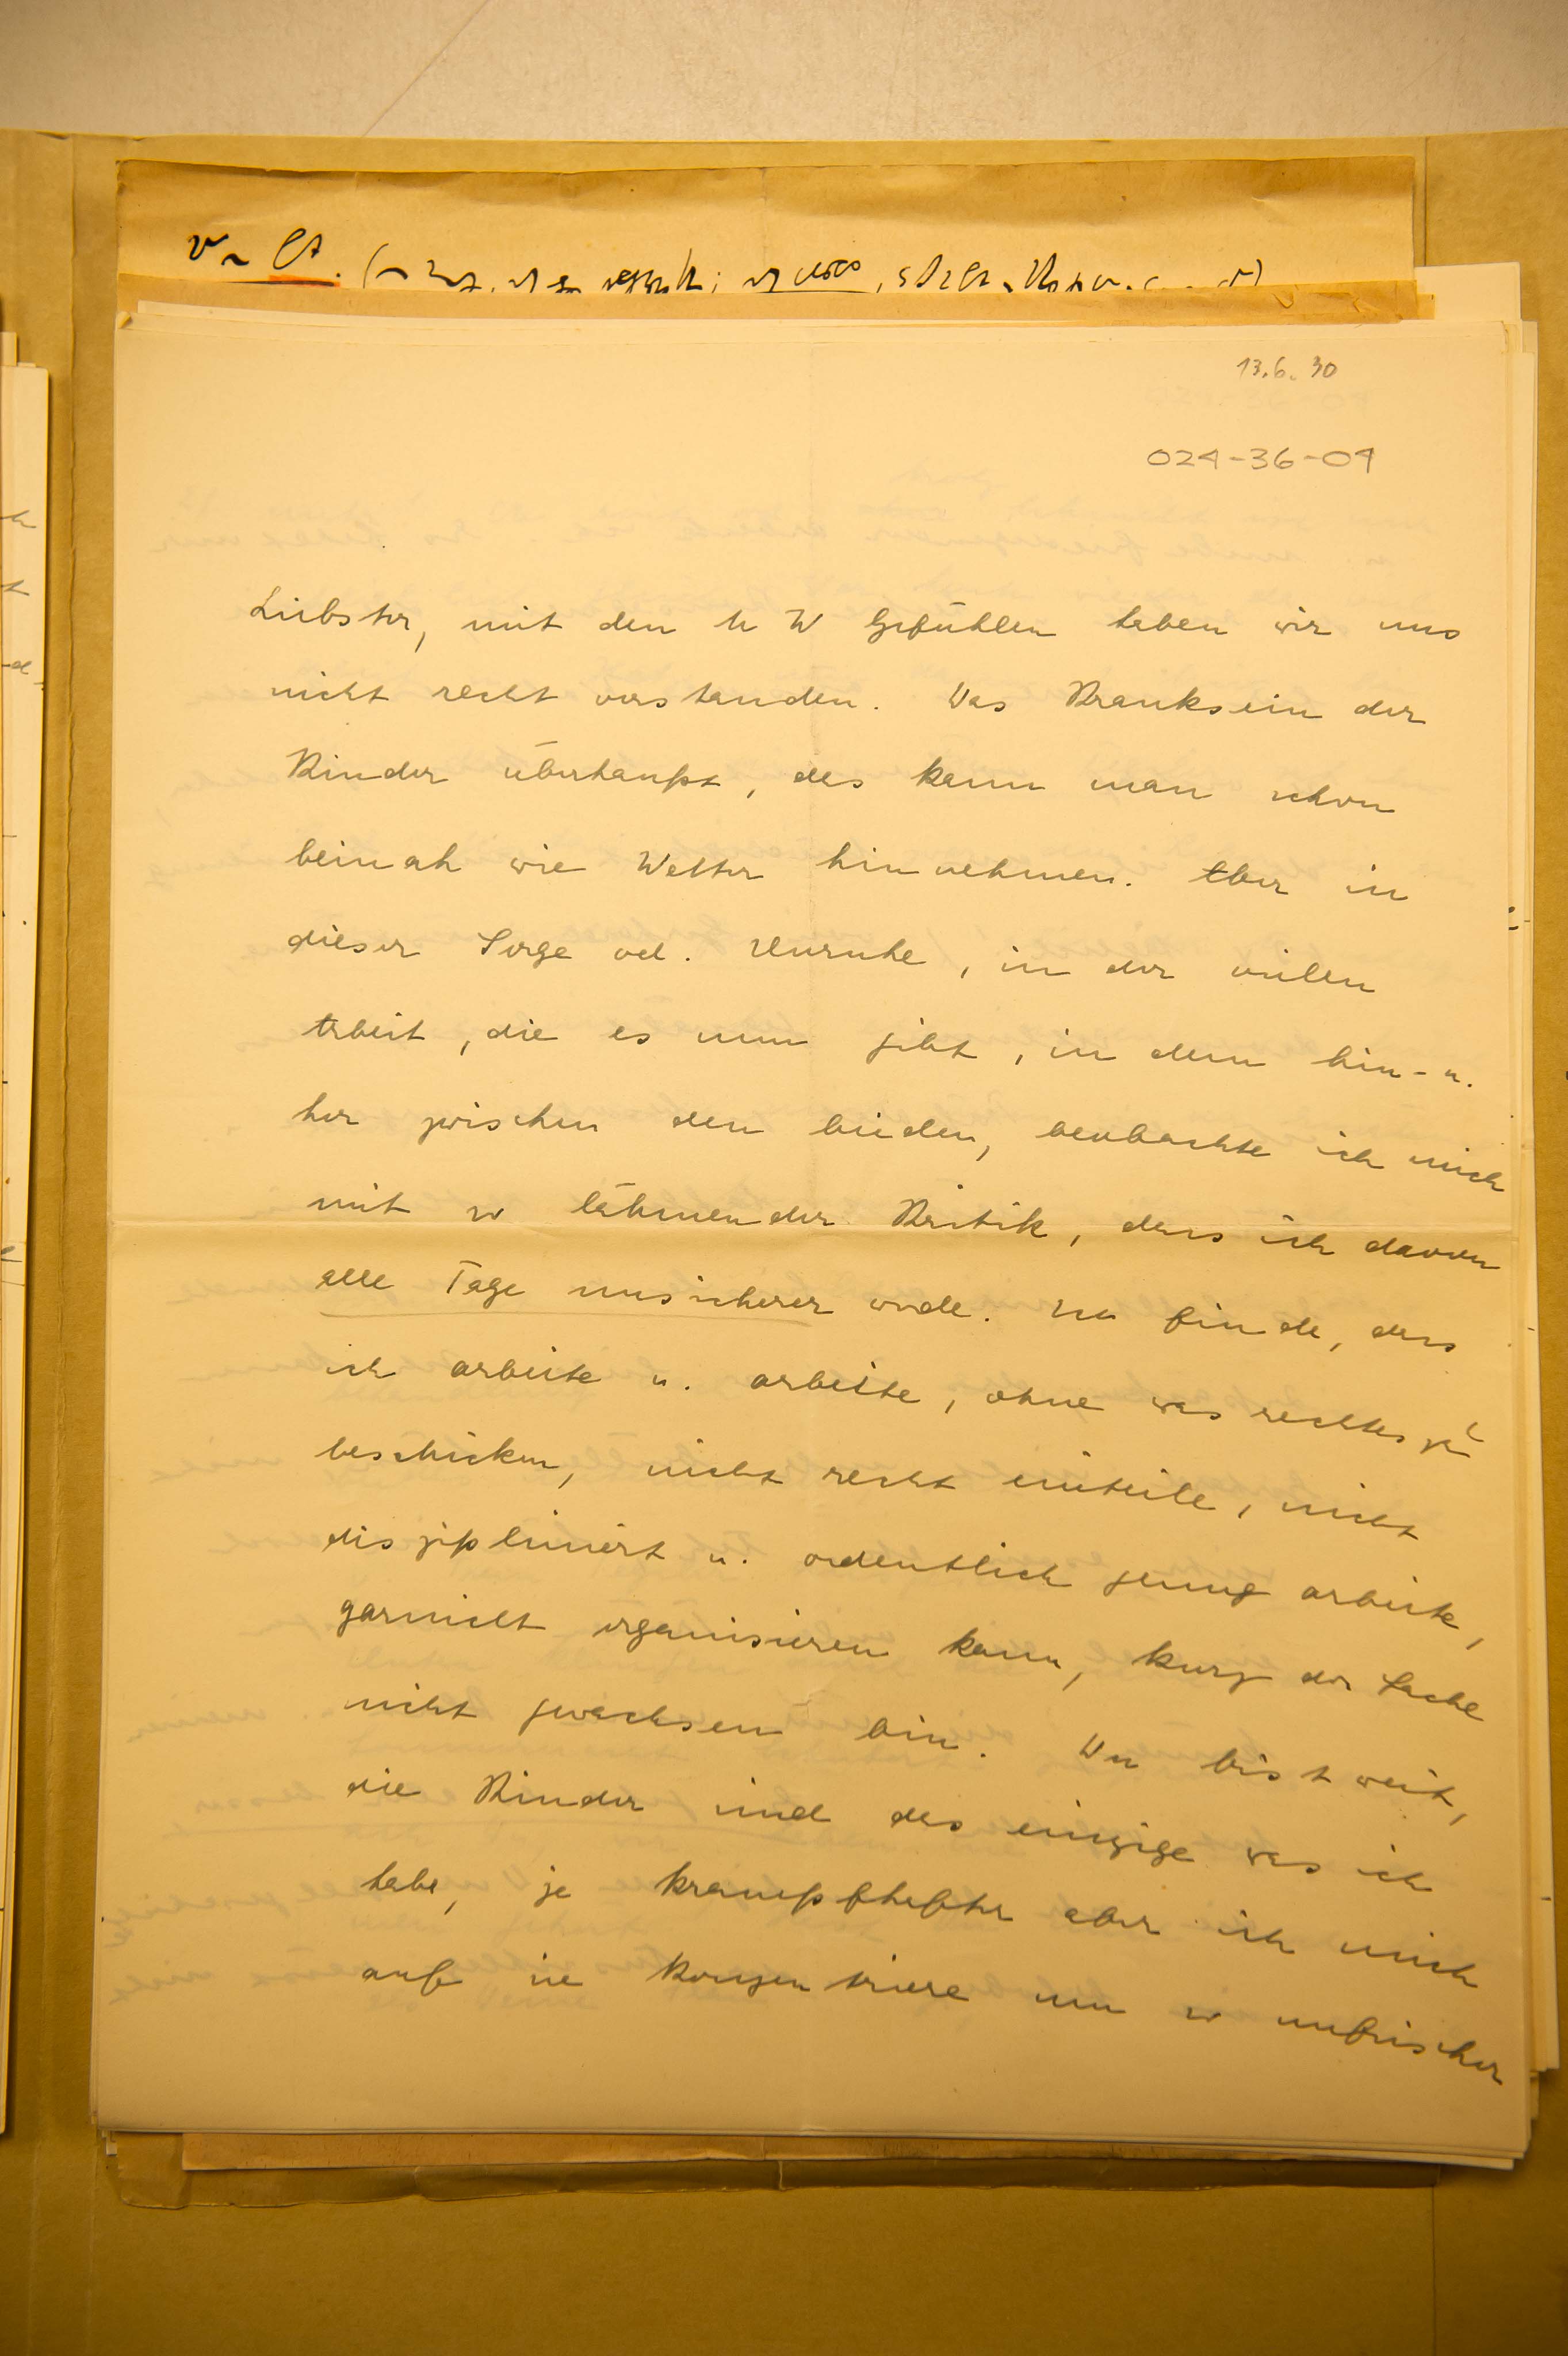 13.6.30
024-36-04
Liebster, mit den M W Gefühlen haben wir uns
nicht recht verstanden. Das Kranksein der
Kinder überhaupt, das kann man schon
beinah wie Wetter hinnehmen. Aber in
dieser Sorge od. Unruhe, in der vielen
Arbeit, die es nun gibt, in dem hin- u.
her zwischen den beiden, beobachte ich mich
mit so lähmender Kritik, dass ich davon
alle Tage unsicherer werde. Ich finde, dass
ich arbeite u. arbeite, ohne was rechtes zu
beschicken, nicht recht einteile, nicht
diszipliniert u. ordentlich genug arbeite,
garnicht organisieren kann, kurz der Sache
nicht gewachsen bin. Du bist weit,
die Kinder sind das einzige was ich
habe, je krampfhafter aber ich mich
auf sie konzentriere um so unfrischer